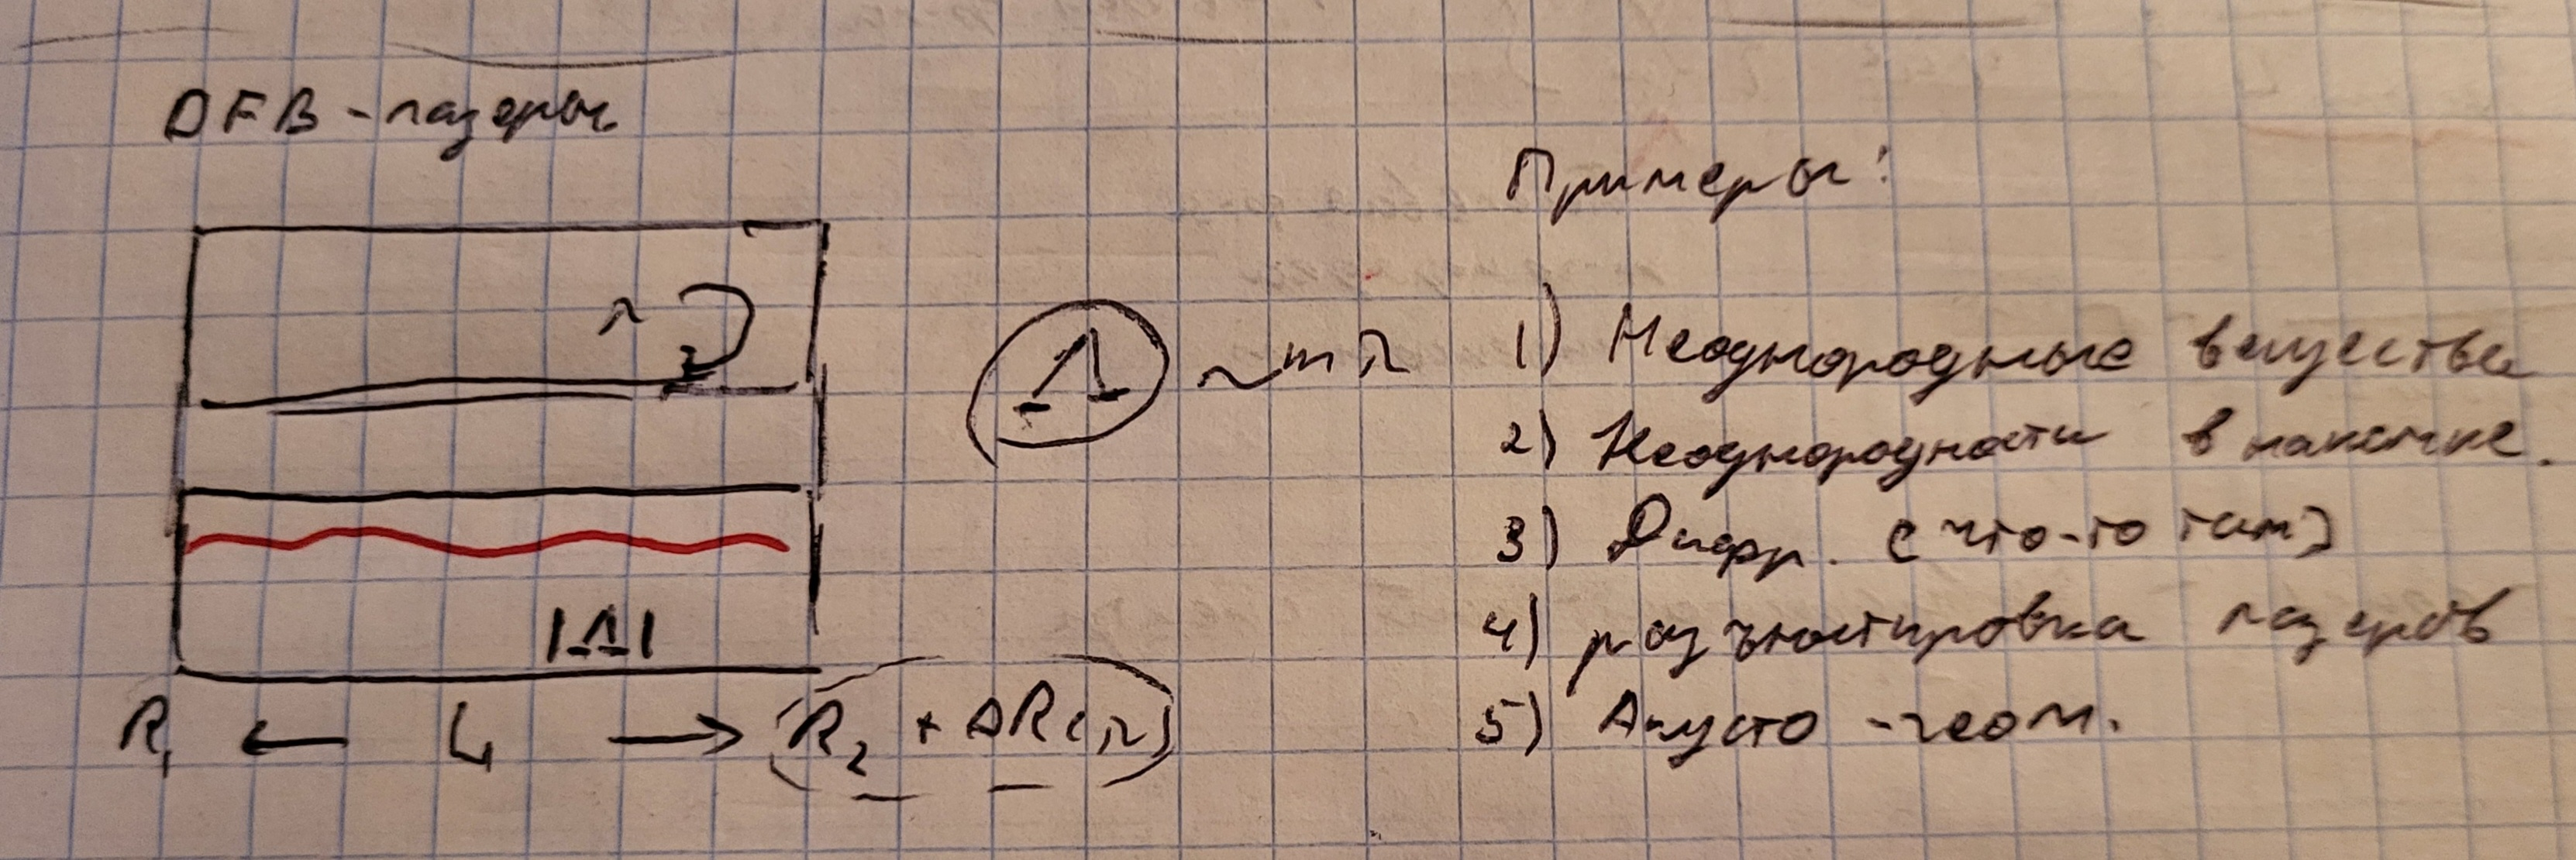 DFB - лазеры
Λ ~ mλ
|Λ|
R₁ ← L → (R₂ + ΔR(λ))
Примеры:
1) Неоднородные вещества
2) Неоднородности в накачке.
3) Дифр. (что-то там)
4) разъюстировка лазеров
5) Акусто - геом.